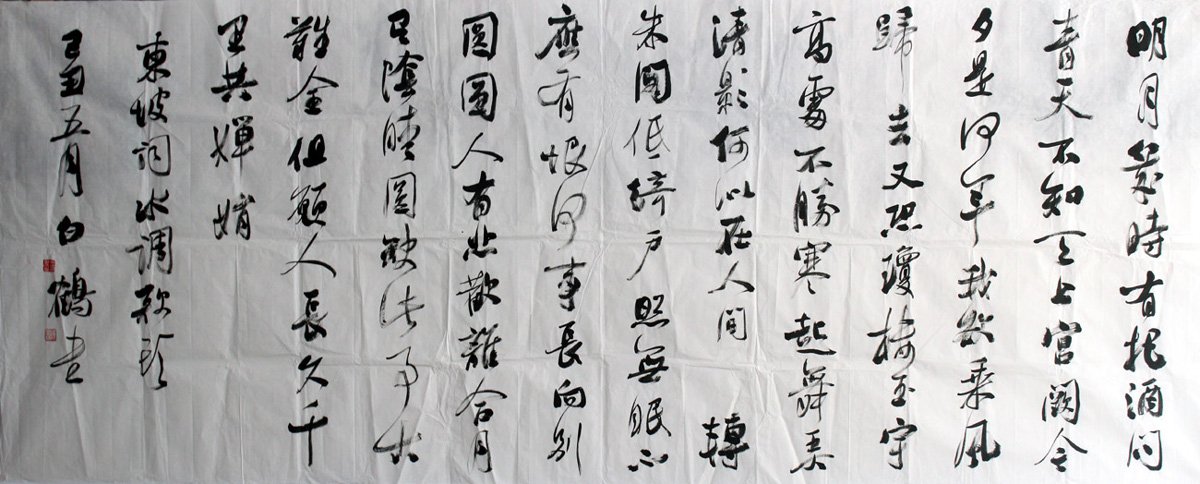 明月幾時有把酒問
青天不知天上宮闕今
夕是何年我欲乘風
歸去又恐瓊樓玉宇
高處不勝寒起舞弄
清影何似在人間 轉
朱閣低綺戶照無眠不
應有恨何事長向別
圓圓人有悲歡離合月
有陰晴圓缺此事古
難全但願人長久千
里共嬋娟
東坡詞水調歌頭
己丑五月白鶴書